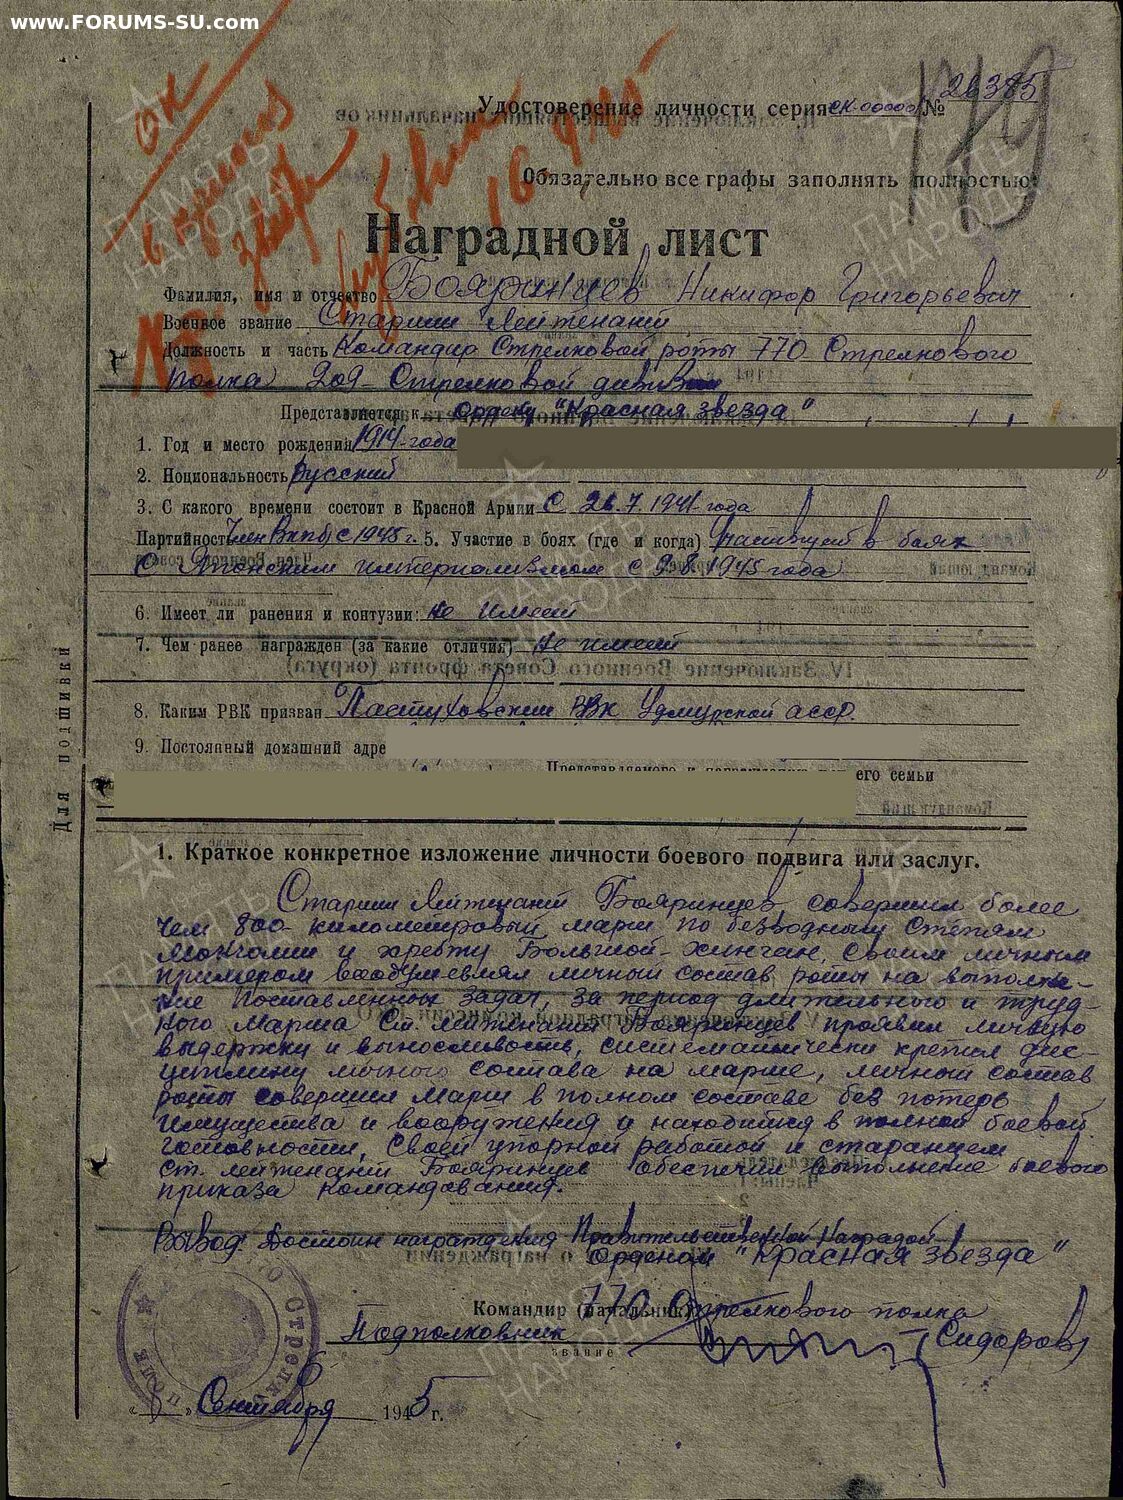 www.FORUMS-SU.com
Удостоверение личности серия СК-00000 № 26385
149
Обязательно все графы заполнять полностью
Наградной лист
Фамилия, имя и отчество Бояринцев Никифор Григорьевич
Военное звание Старши Лейтенант
Должность и часть Командир Стрелковой роты 770 Стрелкового
полка 209 Стрелковой дивизии
Представляется к ордену "Красная звезда"
1. Год и место рождения 1914 года
2. Ноциональность Русский
3. С какого времени состоит в Красной Армии С 26.7.1941 года
Партийность Член ВКПб с 1945 г. 5. Участие в боях (где и когда) участвует в боях
С Японским империолизмом с 9.8.1945 года
6. Имеет ли ранения и контузии: не имеет
7. Чем ранее награжден (за какие отличия) не имеет
8. Каким РВК призван Пастуховским РВК Удмурской асср.
9. Постоянный домашний адре
Представляемого к его семьи
Для подшивки
1. Краткое конкретное изложение личности боевого подвига или заслуг.
Старши Лейтенант Бояринцев совершил более
чем 800 километровый марш по безводным Степям
Монголии и хребту Большой-Хинган, Своим личным
примером воодушевлял личный состав роты на выполне-
ние поставленных задач, за период длительного и труд-
ного Марша Ст. лейтенант Бояринцев проявил личную
выдержку и выносливость, систематически крепил дис-
циплину личного состава на марше, личный состав
роты совершил Марш в полном составе без потерь
имущества и вооружения и находится в полной боевой
готовности, Своей упорной работой и старанием
Ст. лейтенант Бояринцев обеспечил выполнение боевого
приказа командования.
Вывод: Достоин награждения Правительственной Наградой
Орденом "Красная звезда"
Командир (начальник) 770 Стрелкового полка
Подполковник (Сидоров)
звание
Сентября 1945 г.